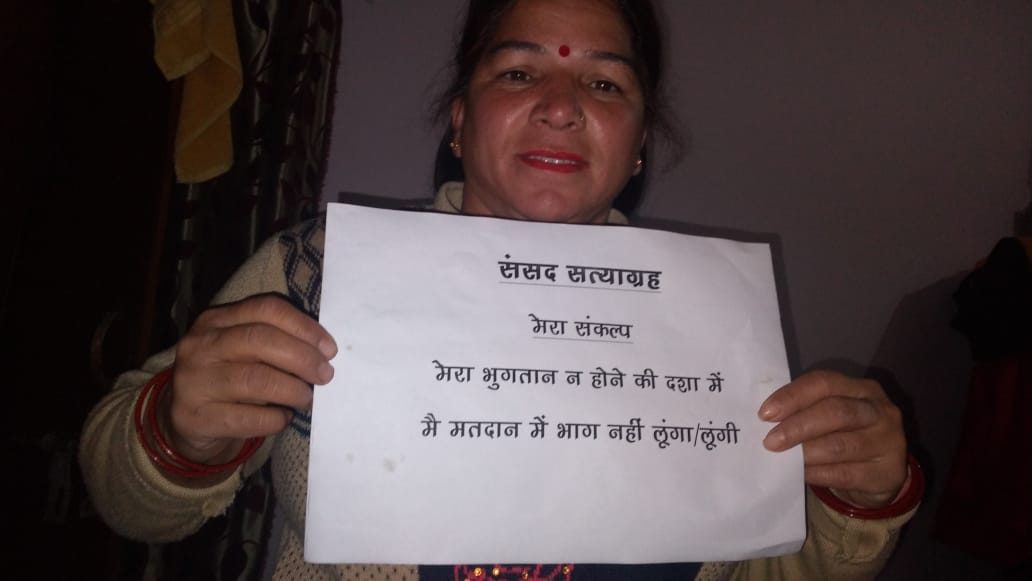 संसद सत्याग्रह
मेरा संकल्प
मेरा भुगतान न होने की दशा में
मै मतदान में भाग नहीं लूंगा/लूंगी